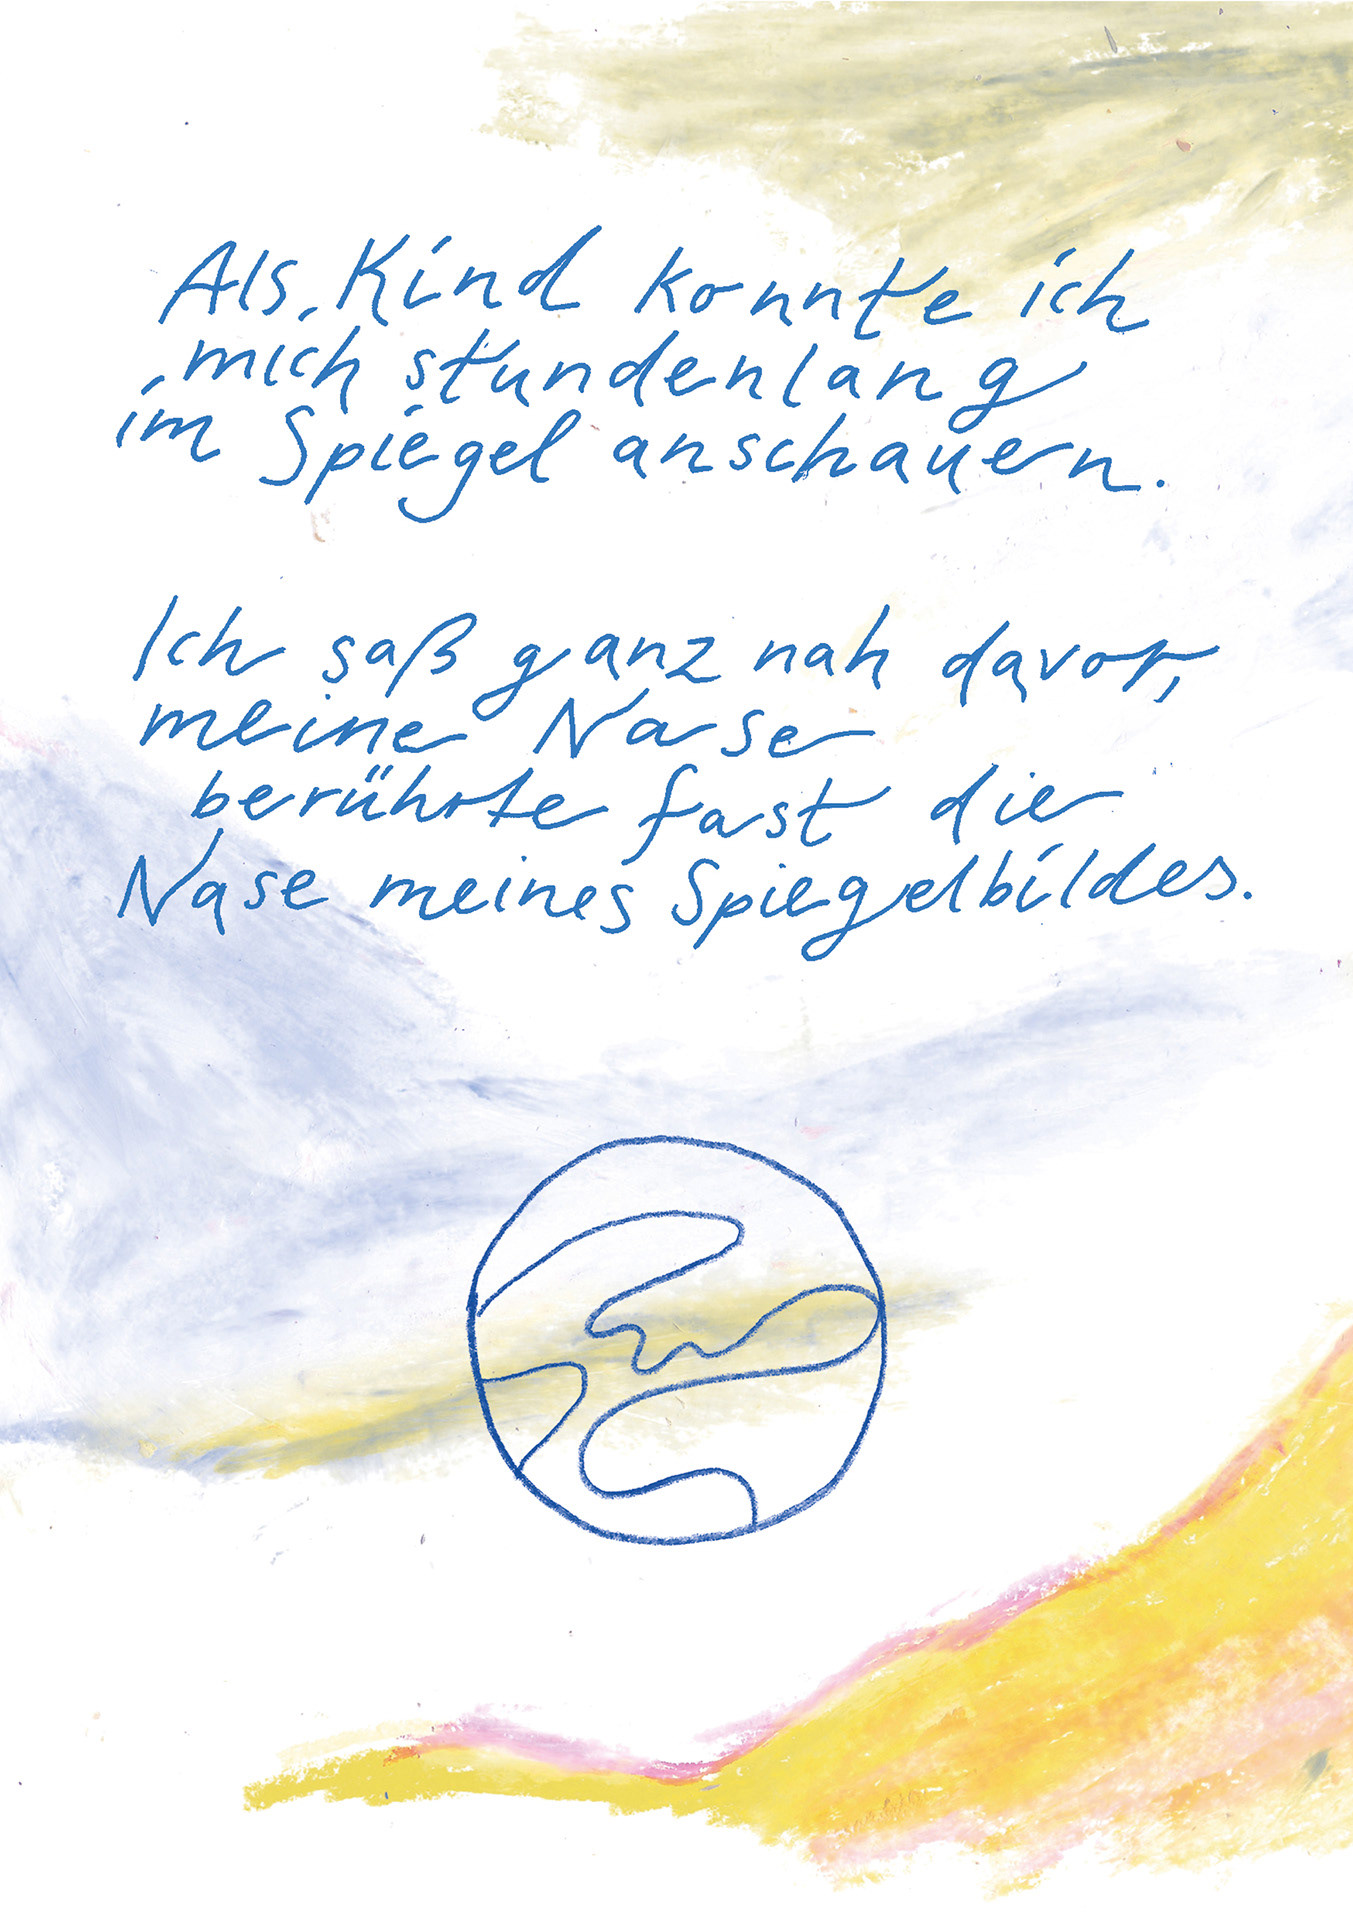 Als Kind konnte ich
mich stundenlang
im Spiegel anschauern.
Ich saß ganz nah davor,
meine Nase
berührte fast die
Nase meines Spiegelbildes.